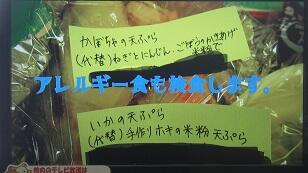 かぼちゃの天ぷら
(代替)ねぎとにんじん、ごぼうのかきあげ
米粉で
アレルギー食も検食します。
いかの天ぷら
(代替)手作りホキの米粉天ぷら